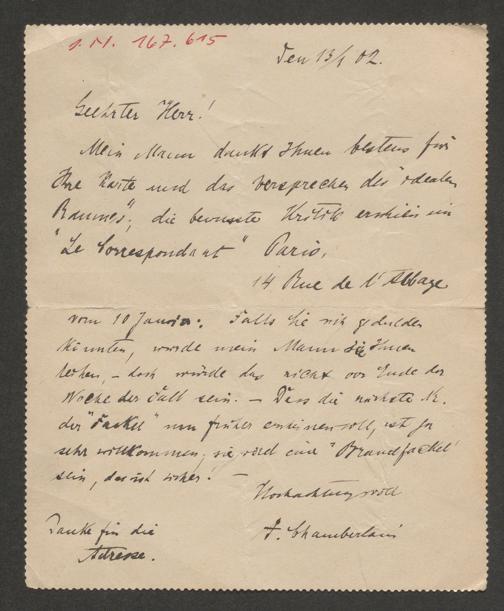 I.N. 167.615
Den 13/1 02.
Geehrter Herr!
Mein Mann dankt Ihnen bestens für
Ihre Karte und das Versprechen des "idealen
Baumes"; die bewusste Kritik erschien im
"Le Correspondant" Paris,
14 Rue de l'Abbaye
vom 10 Januar. Falls Sie sich gedulden
könnten, würde mein Mann sie Ihnen
leihen, – doch würde das nicht vor Ende der
Woche der Fall sein. – Dass die nächste Nr.
der "Fackel" nun früher erscheinen soll, ist ja
sehr willkommen; sie wird eine "Brandfackel"
sein, das ist sicher! –
Hochachtungsvoll
Danke für die
Adresse.
A. Chamberlain